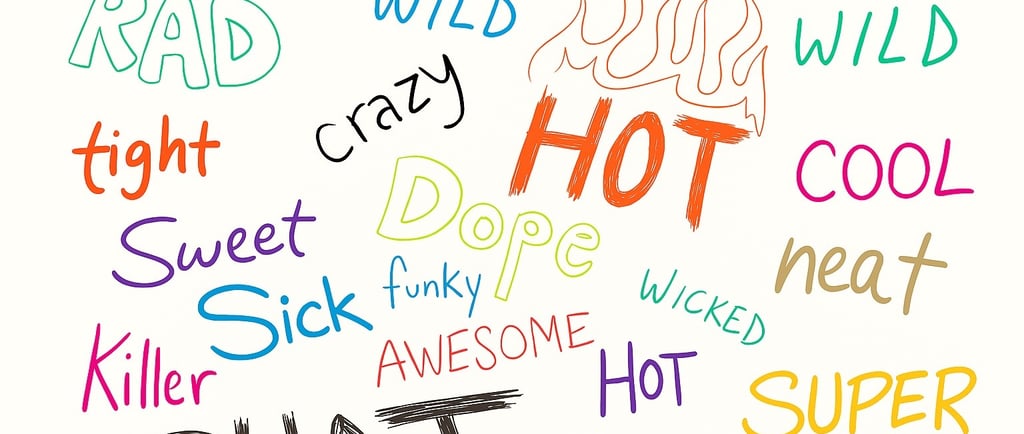 RAD
WILD
WILD
crazy
HOT
tight
COOL
Dope
Sweet
neat
funky
Sick
WICKED
AWESOME
Killer
HOT
SUPER